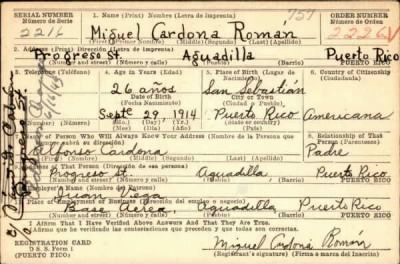 SERIAL NUMBER 1. Name (Print) Nombre (Letra de Imprenta) 757 ORDER NUMBER
Número de Serie Número de Orden
2216 Miguel Cardona Roman 2226V
(First) (Primer Nombre) (Middle) (Segundo) (Last) (Apellido)
2. Address (Print) Dirección (Letra de Imprenta)
Progreso St. Aguadilla Puerto Rico
(Number and street) (Número y calle) (Barrio) (District) (Distrito) PUERTO RICO
3. Telephone (Teléfono) 4. Age in Years (Edad) 5. Place of Birth (Lugar de Nacimiento) 6. Country of Citizenship (Ciudadanía)
26 años San Sebastián
Date of Birth City or Town
(Fecha Nacimiento) (Ciudad o Pueblo)
Septe 29, 1914 Puerto Rico Americana
7. Name of Person Who Will Always Know Your Address (Nombre de la Persona que 8. Relationship of That Person (Parentesco)
Alfonso Cardona Padre
(First) (Primer Nombre) (Middle) (Segundo) (Last) (Apellido)
9. Address of That Person (Dirección de esa persona)
Progreso St. Aguadilla, Puerto Rico
(Number and street) (Número y calle) (Barrio) PUERTO RICO
10. Employer's Name (Nombre
Vega
11. Place of Employment or Business (Dirección del empleo o negocio)
Base Aérea, Aguadilla Puerto Rico
(Number and street) (Número y calle) (Barrio) PUERTO RICO
I Affirm That I Have Verified Above Answers And That They Are True.
Afirmo que he verificado las contestaciones que preceden y que todas son correctas.
REGISTRATION CARD Miguel Cardona Román
D. S. S. Form 1 Registrant's signature (Firma a marca del Inscrito)
(PUERTO RICO)